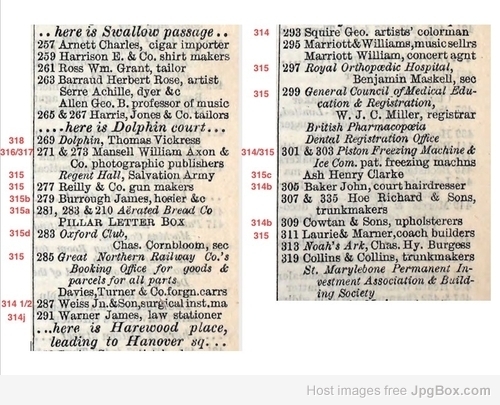 ..here is Swallow passage..
257 Arnett Charles, cigar importer
259 Harrison E. & Co. shirt makers
261 Ross Wm. Grant, tailor
263 Barraud Herbert Rose, artist
Serre Achille, dyer &c
Allen Geo. B. professor of music
265 & 267 Harris, Jones & Co. tailors
....here is Dolphin court...
318 269 Dolphin, Thomas Vickress
316/317 271 & 273 Mansell William Axon &
Co. photographic publishers
315 Regent Hall, Salvation Army
315 277 Reilly & Co. gun makers
315b 279 Burrough James, hosier &c
315a 281, 283 & 210 Aërated Bread Co
PILLAR LETTER BOX
315d 283 Oxford Club,
Chas. Cornbloom, sec
315 285 Great Northern Railway Co.'s
Booking Office for goods &
parcels for all parts
Davies,Turner & Co.forgn.carrs
314 1/2 287 Weiss Jn.&Son,surgical inst.ma
314j 291 Warner James, law stationer
...here is Harewood place,
leading to Hanover sq...
314 293 Squire Geo. artists' colorman
295 Marriott&Williams,music sellrs
Marriott William, concert agnt
315 297 Royal Orthopædic Hospital,
Benjamin Maskell, sec
315 299 General Council of Medical Edu-
cation & Registration,
W. J. C. Miller, registrar
British Pharmacopœia
Dental Registration Office
314/315 301 & 303 Piston Freezing Machine &
Ice Com. pat. freezing machns
315c Ash Henry Clarke
314b 305 Baker John, court hairdresser
307 & 335 Hoe Richard & Sons,
trunkmakers
314b 309 Cowtan & Sons, upholsterers
315 311 Laurie & Marner, coach builders
313 Noah's Ark, Chas. Hy. Burgess
319 Collins & Collins, trunkmakers
St. Marylebone Permanent In-
vestment Association & Build-
ing Society
Host images free JpgBox.com